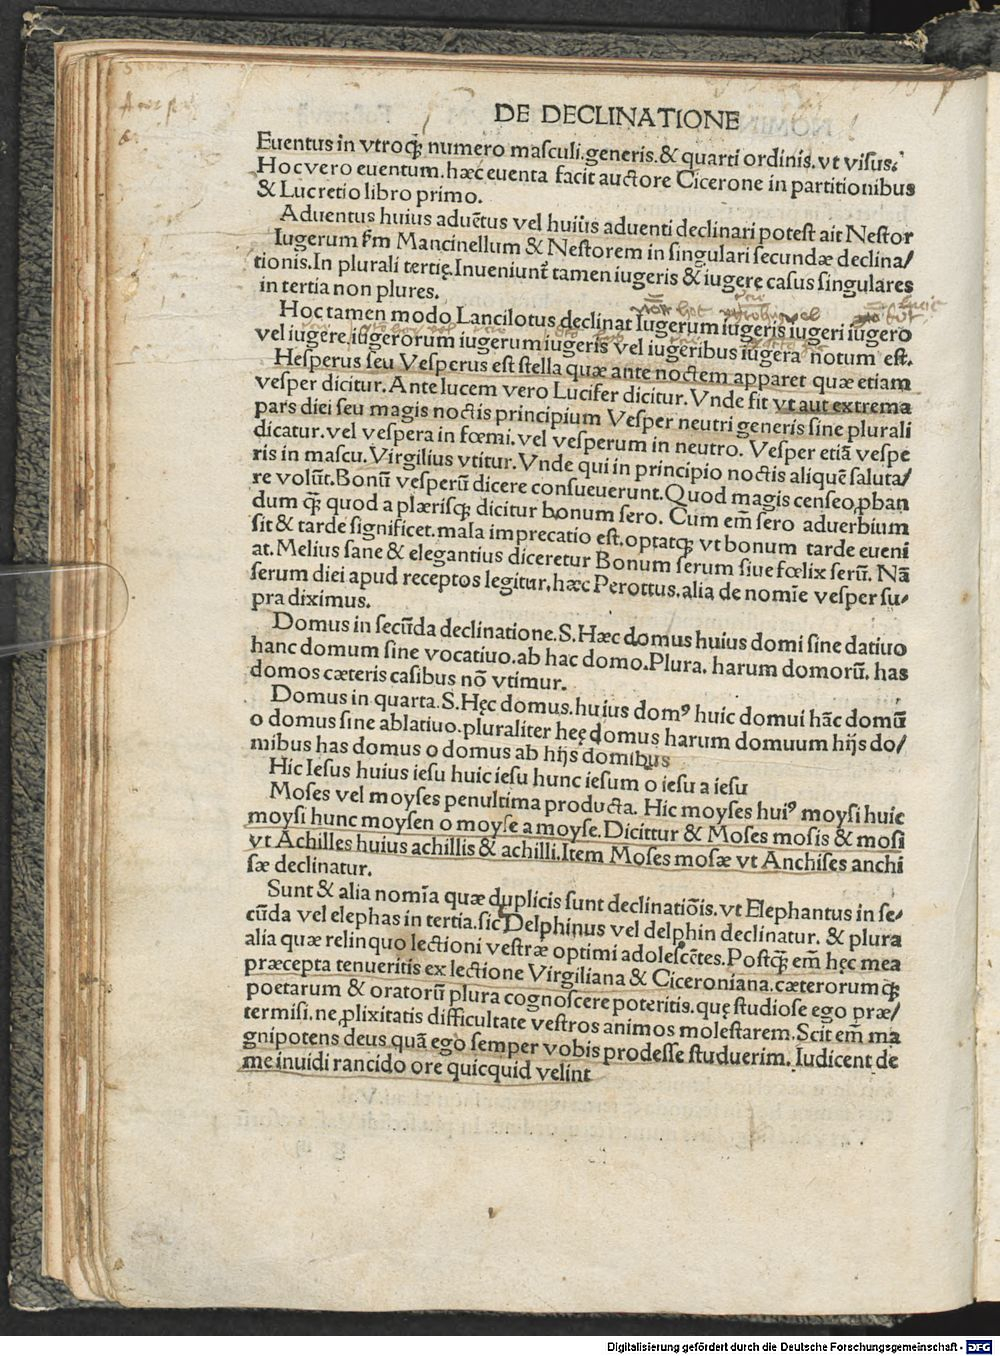 DE DECLINATIONE
Euentus in vtroqꝫ numero masculi.generis.& quarti ordinis.vt visus.
Hoc vero euentum.hæc euenta facit auctore Cicerone in partitionibus
& Lucretio libro primo.
Aduentus huius aduētus vel huius aduenti declinari potest ait Nestor
Iugerum ẜm Mancinellum & Nestorem in singulari secundæ declina/
tionis.In plurali tertię.Inueniunt̄ tamen iugeris & iugere casus singulares
in tertia non plures.
Hoc tamen modo Lancilotus declinat Iugerum iugeris iugeri iugero
vel iugere,iugerorum iugerum iugeris vel iugeribus iugera notum est.
Hesperus seu Vesperus est stella quæ ante noctem apparet quæ etiam
vesper dicitur.Ante lucem vero Lucifer dicitur.Vnde fit vt aut extrema
pars diei seu magis noctis principium Vesper neutri generis sine plurali
dicatur.vel vespera in fœmi.vel vesperum in neutro. Vesper etiā vespe
ris in mascu.Virgilius vtitur.Vnde qui in principio noctis aliquē saluta/
re volūt.Bonū vesperū dicere consueuerunt.Quod magis censeo ꝓban
dum q̄ꝫ quod a plærisqꝫ dicitur bonum sero. Cum em̄ sero aduerbium
sit & tarde significet.mala imprecatio est.optatqꝫ vt bonum tarde eueni
at.Melius sane & elegantius diceretur Bonum serum siue fœlix serū. Nā
serum diei apud receptos legitur,hæc Perottus.alia de nomīe vesper su/
pra diximus.
Domus in secūda declinatione.S.Hæc domus huius domi sine datiuo
hanc domum sine vocatiuo.ab hac domo.Plura. harum domorū. has
domos cæteris casibus nō vtimur.
Domus in quarta.S.Hęc domus.huius domꝰ huic domui hāc domū
o domus sine ablatiuo.pluraliter heę domus harum domuum hijs do/
mibus has domus o domus ab hijs domibus
Hic Iesus huius iesu huic iesu hunc iesum o iesu a iesu
Moses vel moyses penultima producta. Hic moyses huiꝰ moysi huic
moysi hunc moysen o moyse a moyse.Dicittur & Moses mosis & mosi
vt Achilles huius achillis & achilli.Item Moses mosæ vt Anchises anchi
sæ declinatur.
Sunt & alia nomīa quæ duplicis sunt declinatiōis.vt Elephantus in se/
cūda vel elephas in tertia.sic Delphinus vel delphin declinatur. & plura
alia quæ relinquo lectioni vestræ optimi adolescētes.Postq̄ꝫ em̄ hęc mea
præcepta tenueritis ex lectione Virgiliana & Ciceroniana.cæterorumqꝫ
poetarum & oratorū plura cognoscere poteritis.quę studiose ego præ/
termisi.ne ꝓlixitatis difficultate vestros animos molestarem.Scit em̄ ma
gnipotens deus quā ego semper vobis prodesse studuerim. Iudicent de
me inuidi rancido ore quicquid velint
Digitalisierung gefördert durch die Deutsche Forschungsgemeinschaft - DFG